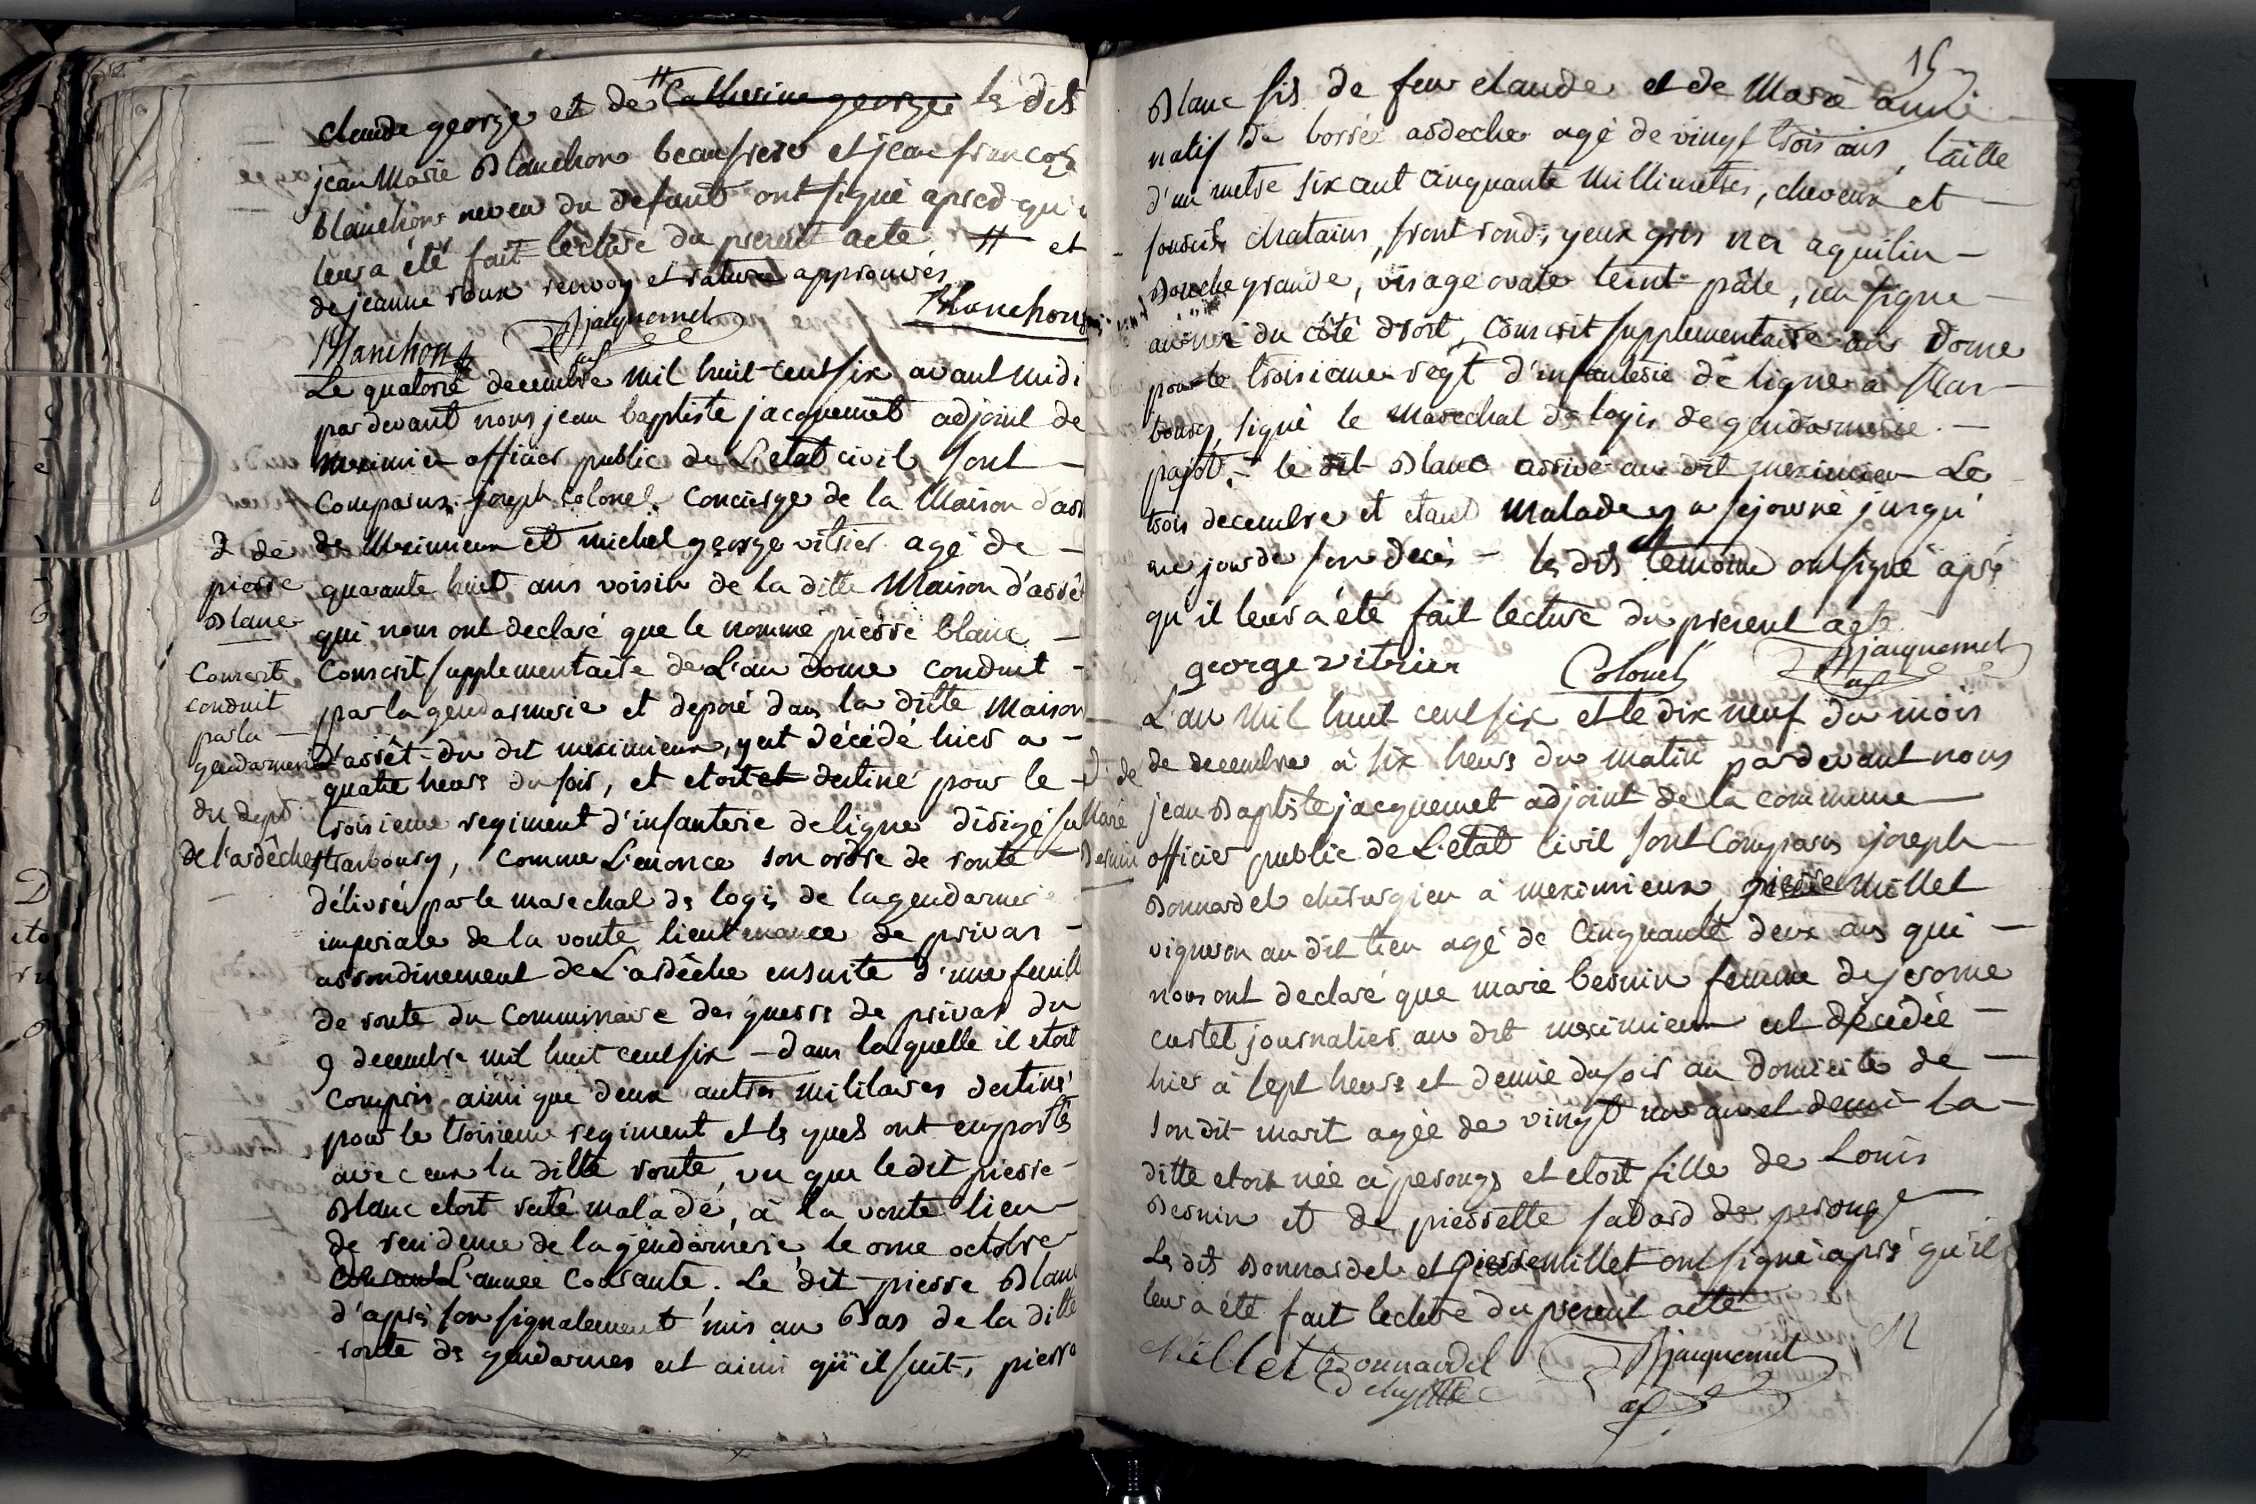 claude george et de # Catherine george les dits
jean Marie Blanchon beaufrere et jean francois
blanchon neveu du defunt ont signé apres qu'il
leur a été fait lecture du present acte # et
de jeanne roux renvoy et rature approuvés
Blanchon
Blanchon Jacquemet
adj
Le quatorze decembre mil huit cent six avant midi
par devant nous jean baptiste jacquemet adjoint de
meximieu officier public de L'etat civil sont
comparus joseph colonel concierge de la Maison d'arr
de Meximieux et michel george vitrier agé de
quarante huit ans voisin de la ditte Maison d'arrêt
qui nous ont declaré que le nommé pierre blanc
Conscrit supplementaire de L'an dome conduit
par la gendarmerie et deposé dans la ditte Maison
d'arrêt du dit meximieux, y est décédé hier a
quatre heurs du soir, et etoit et destiné pour le
troisieme regiment d'infanterie de ligne dirigé su
strasbourg, comme L'enonce son ordre de route
délivrés par le marechal de logis de la gendarmerie
imperiale de la voute lieutenance de privas
arrondinement de L'ardêche ensuite d'une feuill
de route du Commissaire des guerrs de privas du
9 decembre mil huit cent six - dans laquelle il etoit
compris ainsi que deux autres militaires destiné
pour le troisieme regiment et les quels ont emportés
avec eux la ditte route, vu que le dit pierre
Blanc etoit resté malade, à la voute lieu
de residence de la gendarmerie le onze octobre
courant L'année courante. Le dit pierre Blanc
d'après son signalement mis au Bas de la ditte
route de gendarmes est ainsi qu'il suit, pierre
D de
pierre
Blanc
Conscrit
conduit
par la
gendarmerie
du dept
de l'ardêche
15
Blanc fils de feu claude et de Marie
natif de borrée ardeche agé de vingt trois ans, taille
d'un metre six cent cinquante Millimetres, cheveux et
sourcils chatains, front rond, yeux gris nez aquilin
Bouche grande, visage ovale teint pâle, un signe
au nez du côté droit, conscrit supplementaire an dome
pour le troisieme regt d'infanterie de ligne a Stras
bourg, signé le marechal de logis de gendarmerie.
pajot. - le dit Blanc arrivé au dit meximieu Le
trois decembre et etant malade y a sejourné jusqu'
au jour de son decès - les dits temoins ont signé après
qu'il leurs a été fait lecture du present acte
george vitrier Colonel Jacquemet
adj
L'an Mil huit cent six et le dix neuf du mois
de decembre à six heurs du matin par devant nous
jean Baptiste jacquemet adjoint de la commune
officier public de L'etat civil sont comparus joseph
Bonnardel chirurgien à meximieux, pierre Millet
vigneron au dit lieu agé de cinquante deux ans qui
nous ont declaré que marie bernin femme de jerome
curtet journalier au dit meximieux est décedée
hier à sept heurs et demie du soir au domicile de
son dit mari agée de vingt un ans et demi la
ditte etoit née à peroug et etoit fille de Louis
Bernin et de pierrette sabard de perouge
Les dits Bonnardel et pierre millet ont signé après qu'il
leur a été fait lecture du present acte
D. de
Marie
Bernin
Millet Bonnardel Jacquemet
adj